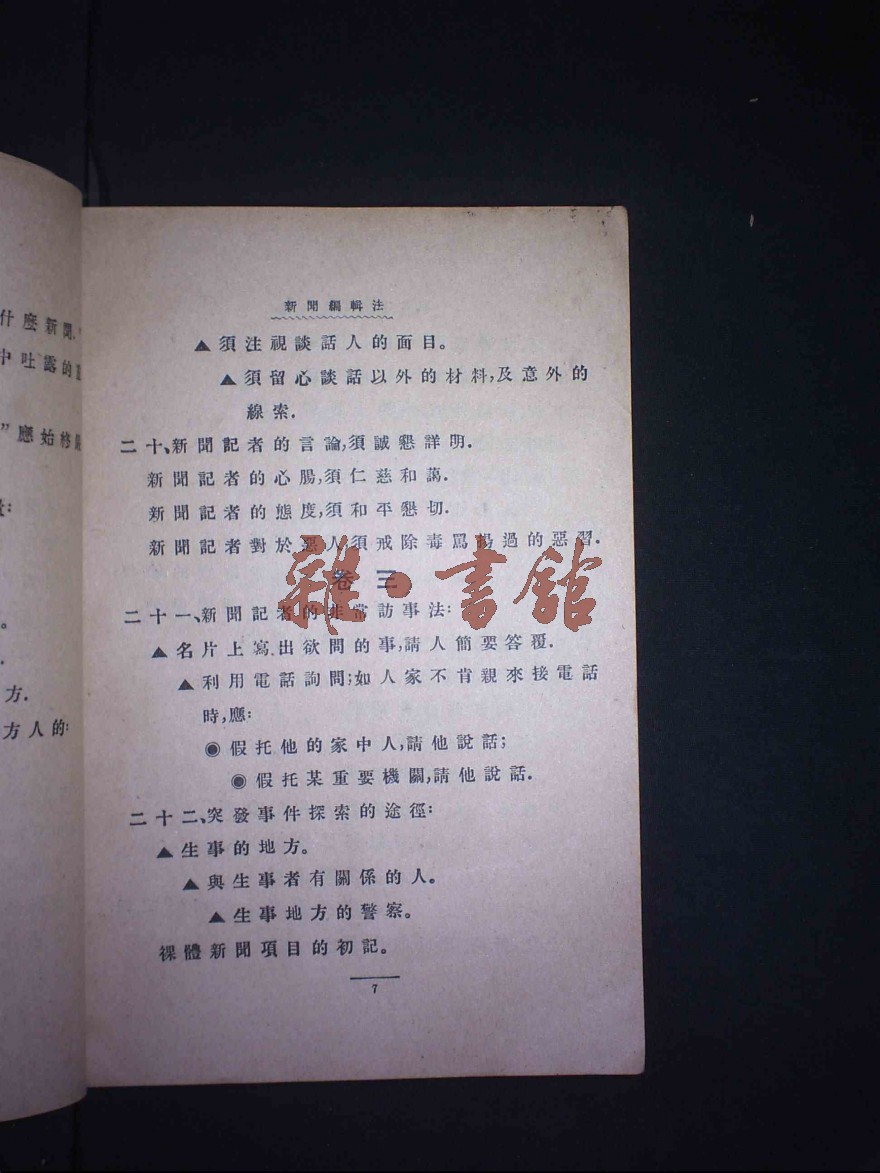 什麼新聞,
中吐露的
”應始終
。
方.
方人的:
新聞編輯法
▲須注視談話人的面目。
▲須留心談話以外的材料,及意外的
線索.
二十、新聞記者的言論,須誠懇詳明.
新聞記者的心腸,須仁慈和藹.
新聞記者的態度,須和平懇切.
新聞記者對於惡人,須戒除毒罵過的惡習.
卷三
雜·書館
二十一、新聞記者的非常訪事法:
▲名片上寫出欲問的事,請人簡要答覆.
▲利用電話詢問;如人家不肯親來接電話
時,應:
◉假托他的家中人,請他說話;
◉假托某重要機關,請他說話.
二十二、突發事件探索的途徑:
▲生事的地方。
▲與生事者有關係的人。
▲生事地方的警察。
裸體新聞項目的初記。
7